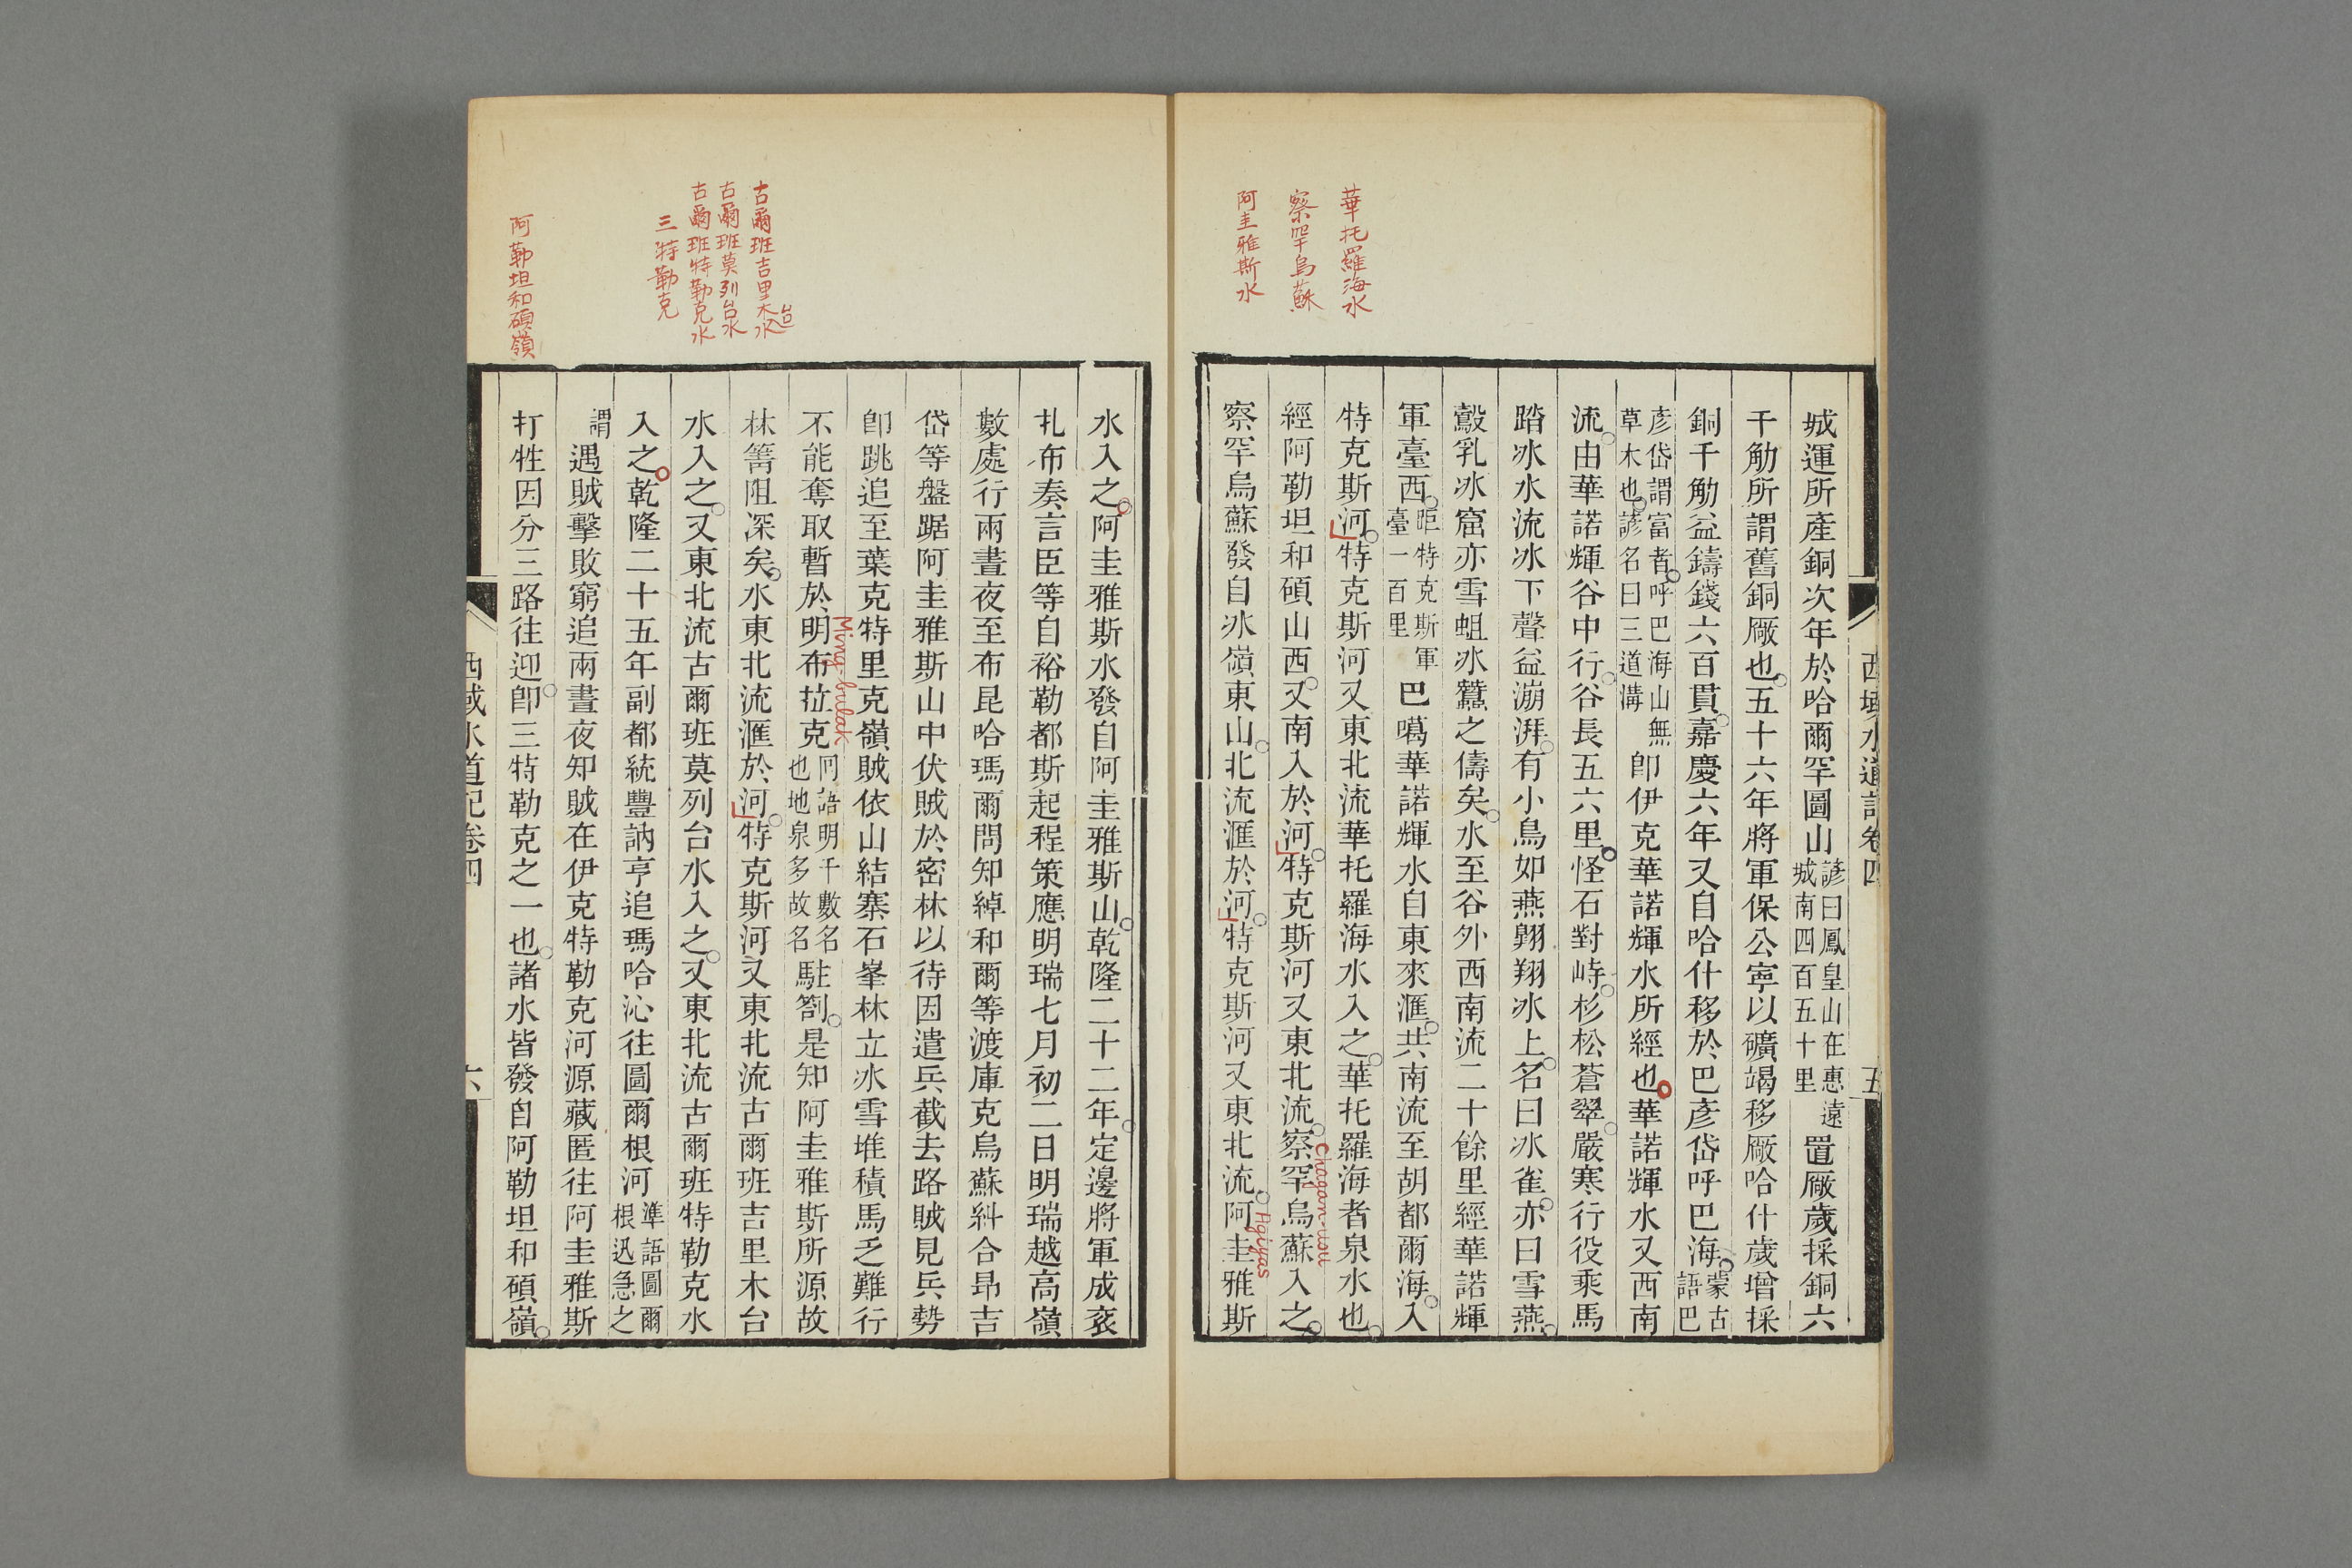 華托羅海水
察罕烏蘇
阿圭雅斯水
西域水道記卷四
五
城運所產銅次年於哈爾罕圖山諺曰鳳皇山在惠遠城南四百五十里置廠歲採銅六
千觔所謂舊銅廠也五十六年將軍保公寧以礦竭移廠哈什歲增採
銅千觔益鑄錢六百貫嘉慶六年又自哈什移於巴彥岱呼巴海蒙古語巴
彥岱謂富者呼巴海山無草木也諺名曰三道溝卽伊克華諾輝水所經也華諾輝水又西南
流由華諾輝谷中行谷長五六里怪石對峙杉松蒼翠嚴寒行役乘馬
踏冰水流冰下聲益漰湃有小鳥如燕翺翔冰上名曰冰雀亦曰雪燕
鷇乳冰窟亦雪蛆冰蠶之儔矣水至谷外西南流二十餘里經華諾輝
軍臺西距特克斯軍臺一百里巴噶華諾輝水自東來滙共南流至胡都爾海入
特克斯河特克斯河又東北流華托羅海水入之華托羅海者泉水也
經阿勒坦和碩山西又南入於河特克斯河又東北流察罕烏蘇入之
Chagan-usu
察罕烏蘇發自冰嶺東山北流滙於河特克斯河又東北流阿圭雅斯
Agiyas
古爾班吉里木台水
古爾班莫列台水
古爾班特勒克水
三特勒克
阿勒坦和碩嶺
水入之阿圭雅斯水發自阿圭雅斯山乾隆二十二年定邊將軍成衮
扎布奏言臣等自裕勒都斯起程策應明瑞七月初二日明瑞越高嶺
數處行兩晝夜至布昆哈瑪爾問知綽和爾等渡庫克烏蘇糾合昂吉
岱等盤踞阿圭雅斯山中伏賊於密林以待因遣兵截去路賊見兵勢
卽跳追至葉克特里克嶺賊依山結寨石峯林立冰雪堆積馬乏難行
Ming-bulak
不能奪取暫於明布拉克囘語明千數名也地泉多故名駐劄是知阿圭雅斯所源故
林箐阻深矣水東北流滙於河特克斯河又東北流古爾班吉里木台
水入之又東北流古爾班莫列台水入之又東北流古爾班特勒克水
入之乾隆二十五年副都統豐訥亨追瑪哈沁往圖爾根河準語圖爾根迅急之
謂遇賊擊敗窮追兩晝夜知賊在伊克特勒克河源藏匿往阿圭雅斯
打牲因分三路往迎卽三特勒克之一也諸水皆發自阿勒坦和碩嶺
西域水道記卷四
六